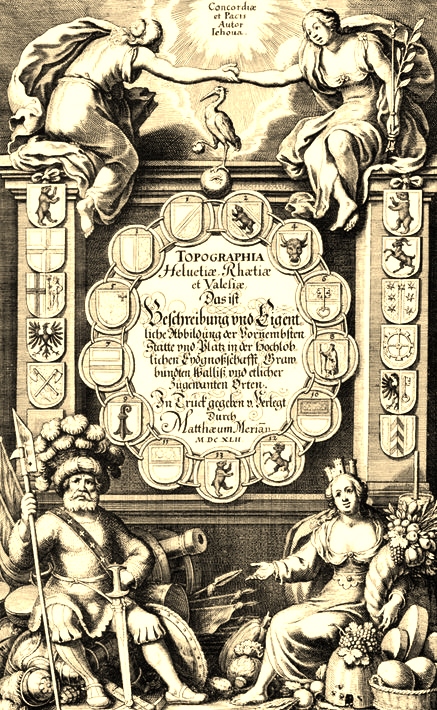 Concordiæ
et Pacis
Autor
Iehova.
TOPOGRAPHIA
Helvetiæ, Rhætiæ
et Valesiæ.
Das ist
Beschreibung vnd Eigent
liche Abbildung der Vornembsten
Stätte vnd Plätz in der Hochlob
lichen Eydgnoßschafft, Graw
bündten Wallis, vnd etlicher
Zugewanten Orten.
In Truck gegeben v. Verlegt
Durch
Matthæum Merian
MDCXLII